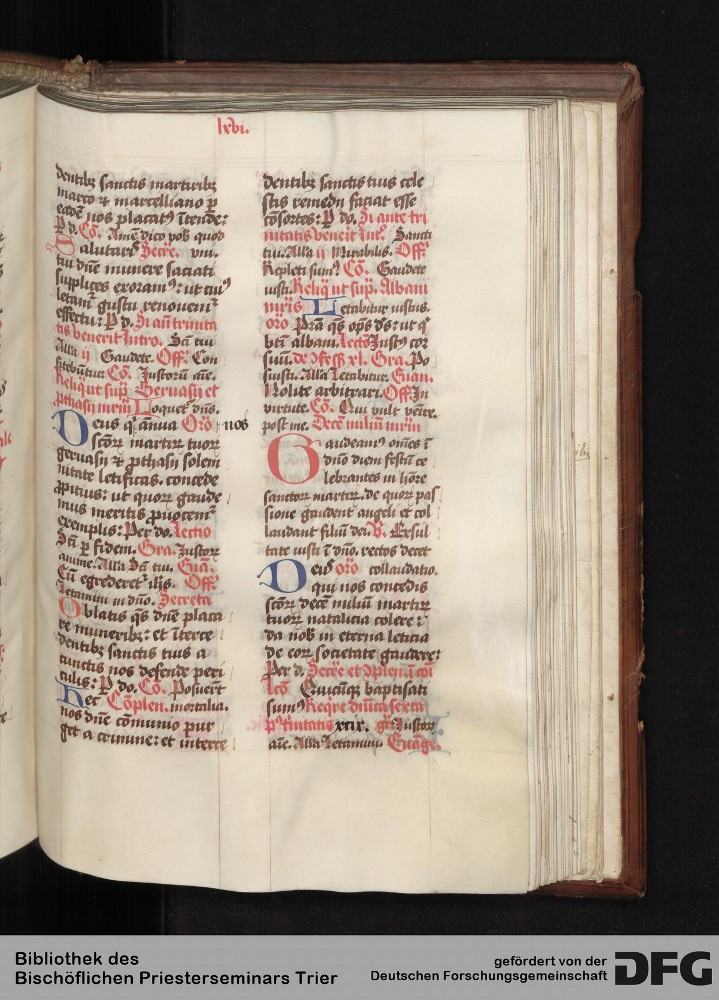 lxvi.
dentibꝫ sanctis martiribꝫ
marco ⁊ marcelliano p̄
eadē nos placatꝰ ītende:
P̄ d. Cō. Amē dico vob̄ quod
Salutarꝭ Secre. vni.
tui dn̄e munere saciati
supplices exoramꝰ: ut cuiꝰ
letamꝰ gustu renouemꝰ
effectu: P̄ d. Si an̄ trinita
tis venerit Intro. Sā tui
Alla ij Gaudete. Off. Con
fitebūtur. Cō. Justorū aīe.
Reliq̄ ut sup̄. Geruasij et
ꝓthasij mr̄m Loquetꝰ dn̄s.
Deus q̄ ānua Orō nos
scōꝝ martiꝝ tuoꝝ
geruasij ⁊ ꝓthasij solem
nitate letificas. concede
ꝓpitius: ut quoꝝ gaude
mus meritis ꝓuocemꝰ
exemplis: Per do. Lectio
Sā ꝑ fidem. Gra. Justoꝝ
anime. Alla Sā tui. Euā.
Cū egrederetꝰ ihs̄. Off.
Letamini in dn̄o. Secreta
Oblatis qs̄ dn̄e placa
re muneribꝫ: et īterce
dentibꝫ sanctis tuis a
cunctis nos defende peri
culis: P̄ do. Cō. Posuerūt
Hec Cōplen. mortalia.
nos dn̄e cōmunio pur
get a crimine: et interce
dentibꝫ sanctis tuis cele
stis remedij faciat esse
cōsortes: P̄ do. Si ante tri
nitatis venerit Int. Sancti
tui. Alla ij Mirabilis. Off.
Repleti sumꝰ Cō. Gaudete
iusti. Reliq̄ ut sup̄. Albani
mr̄is Letabitur iustus.
orō Pr̄a qs̄ ops̄ ds̄: ut q̄
bt̄i albani. Lectō Justꝰ cor
suū. de ꝯfess̄ xl. Gra. Po
suisti. Alla Letabitur. Euan.
Nolite arbitrari. Off. In
virtute. Cō. Qui vult venire.
post me. Decē miliū mr̄m
Gaudeamꝰ om̄es ī
dn̄o diem festū ce
lebrantes in hōre
sanctoꝝ martiꝝ. de quoꝝ pas
sione gaudent angeli et col
laudant filiū dei. V. Exsul
tate iusti ī dn̄o. rectos decet
Deus orō collaudatio.
qui nos concedis
scōꝝ decē miliū martiꝝ
tuoꝝ natalicia colere:
da nob̄ in eterna leticia
de eoꝝ societate gaudere:
Per d. Secre et ꝯplen. ī cōi
Lcō Quicūqꝫ baptisati
sumꝰ Reqre dn̄ica sexta
pꝰ trinitatis xcix. gr. Justoꝝ
aīe. Alla Letamini. Euāge.
Bibliothek des
Bischöflichen Priesterseminars Trier
gefördert von der
Deutschen Forschungsgemeinschaft
DFG